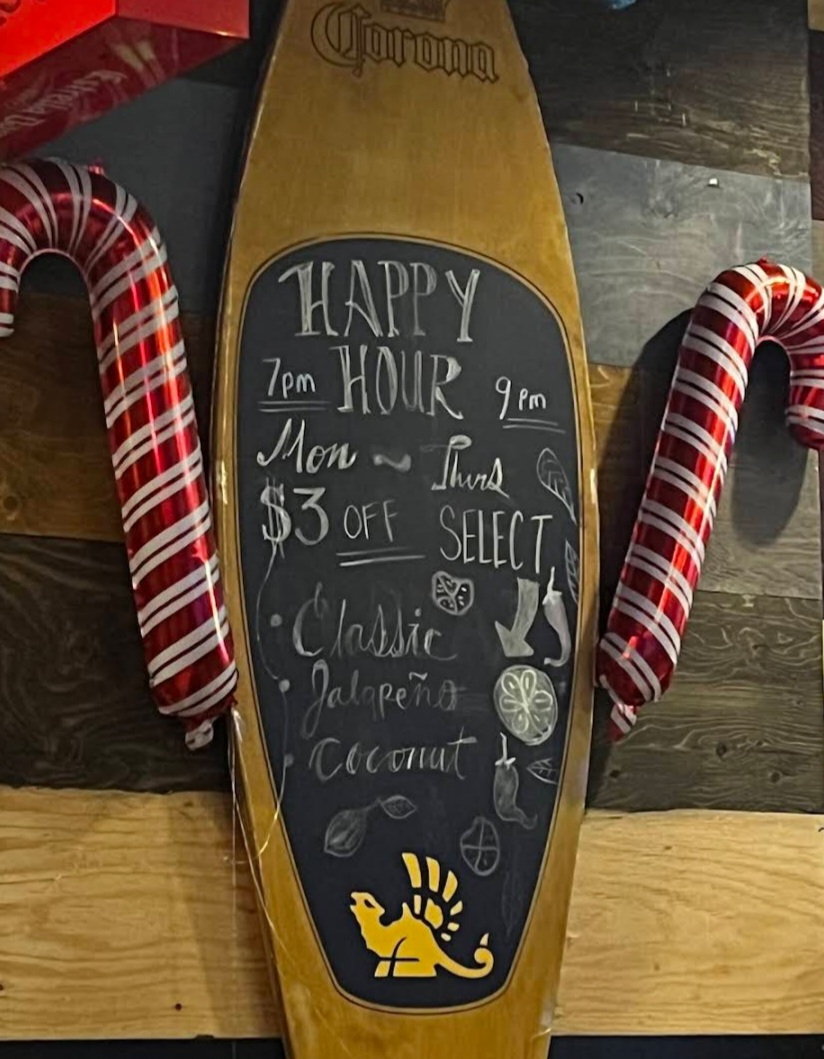 Corona
HAPPY
7pm HOUR 9pm
Mon ~ Thurs
$3 OFF SELECT
• Classic
• Jalapeño
• Coconut